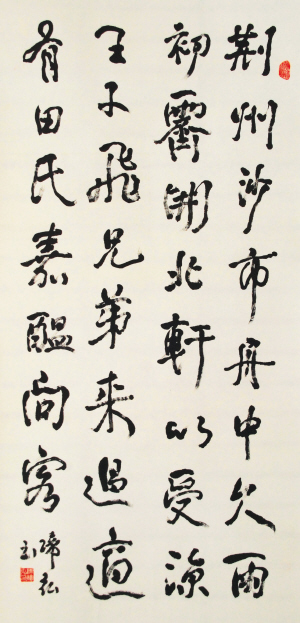 荆州沙市舟中久雨
初霽開北軒以受涼
王子飛兄弟来過適
有田氏嘉醞問客